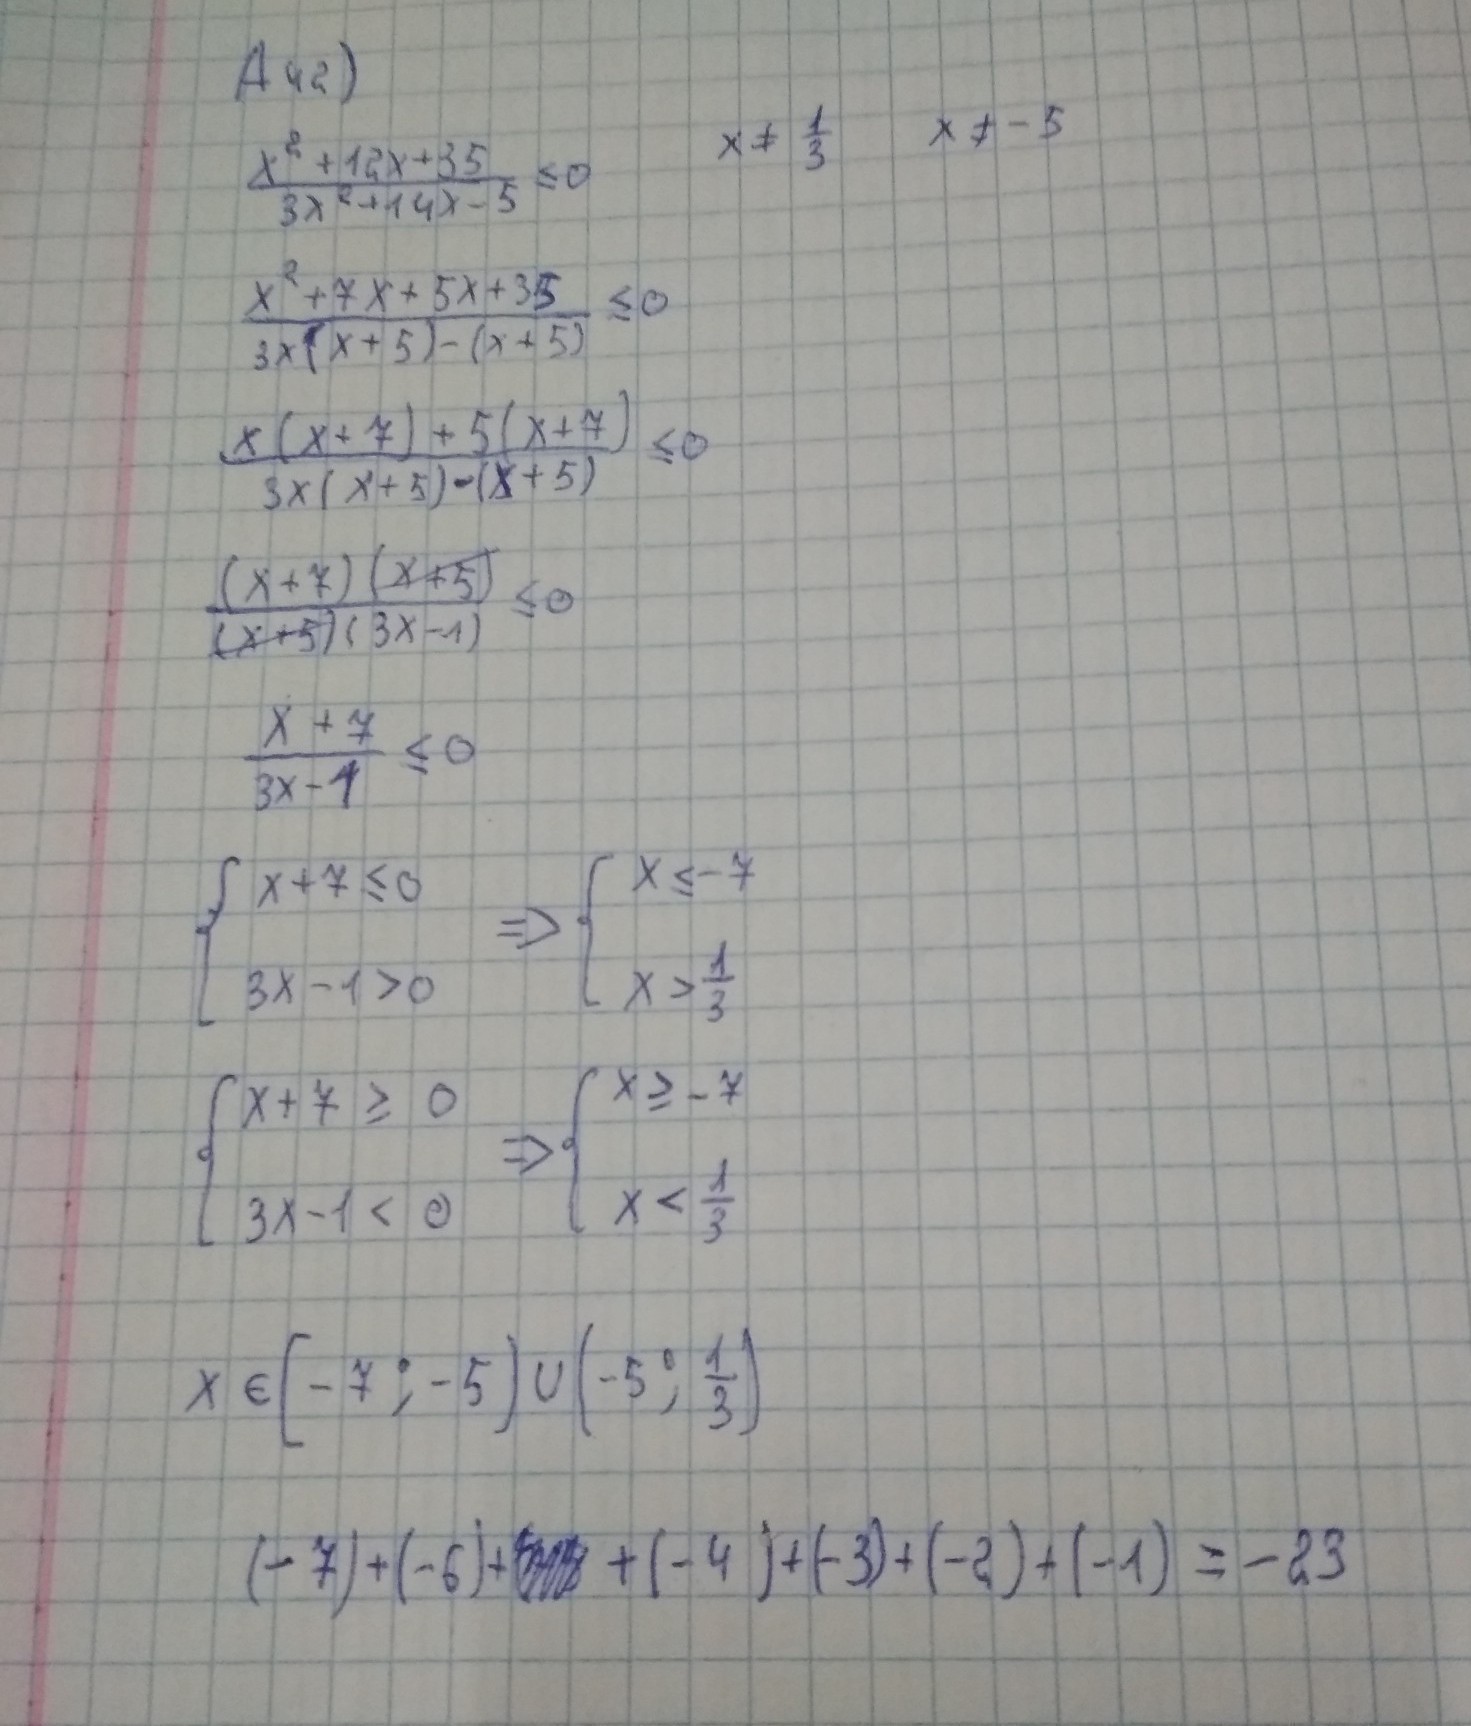 A42)
x² + 12x + 35 / 3x² + 14x - 5 ≤ 0    x ≠ 1/3    x ≠ -5
x² + 7x + 5x + 35 / 3x(x + 5) - (x + 5) ≤ 0
x(x + 7) + 5(x + 7) / 3x(x + 5) - (x + 5) ≤ 0
(x + 7)(x + 5) / (x + 5)(3x - 1) ≤ 0
x + 7 / 3x - 1 ≤ 0
{ x + 7 ≤ 0 ⇒ { x ≤ -7
3x - 1 > 0    x > 1/3
{ x + 7 ≥ 0 ⇒ { x ≥ -7
3x - 1 < 0    x < 1/3
x ∈ [-7; -5) ∪ (-5; 1/3)
(-7) + (-6) + + (-4) + (-3) + (-2) + (-1) = -23